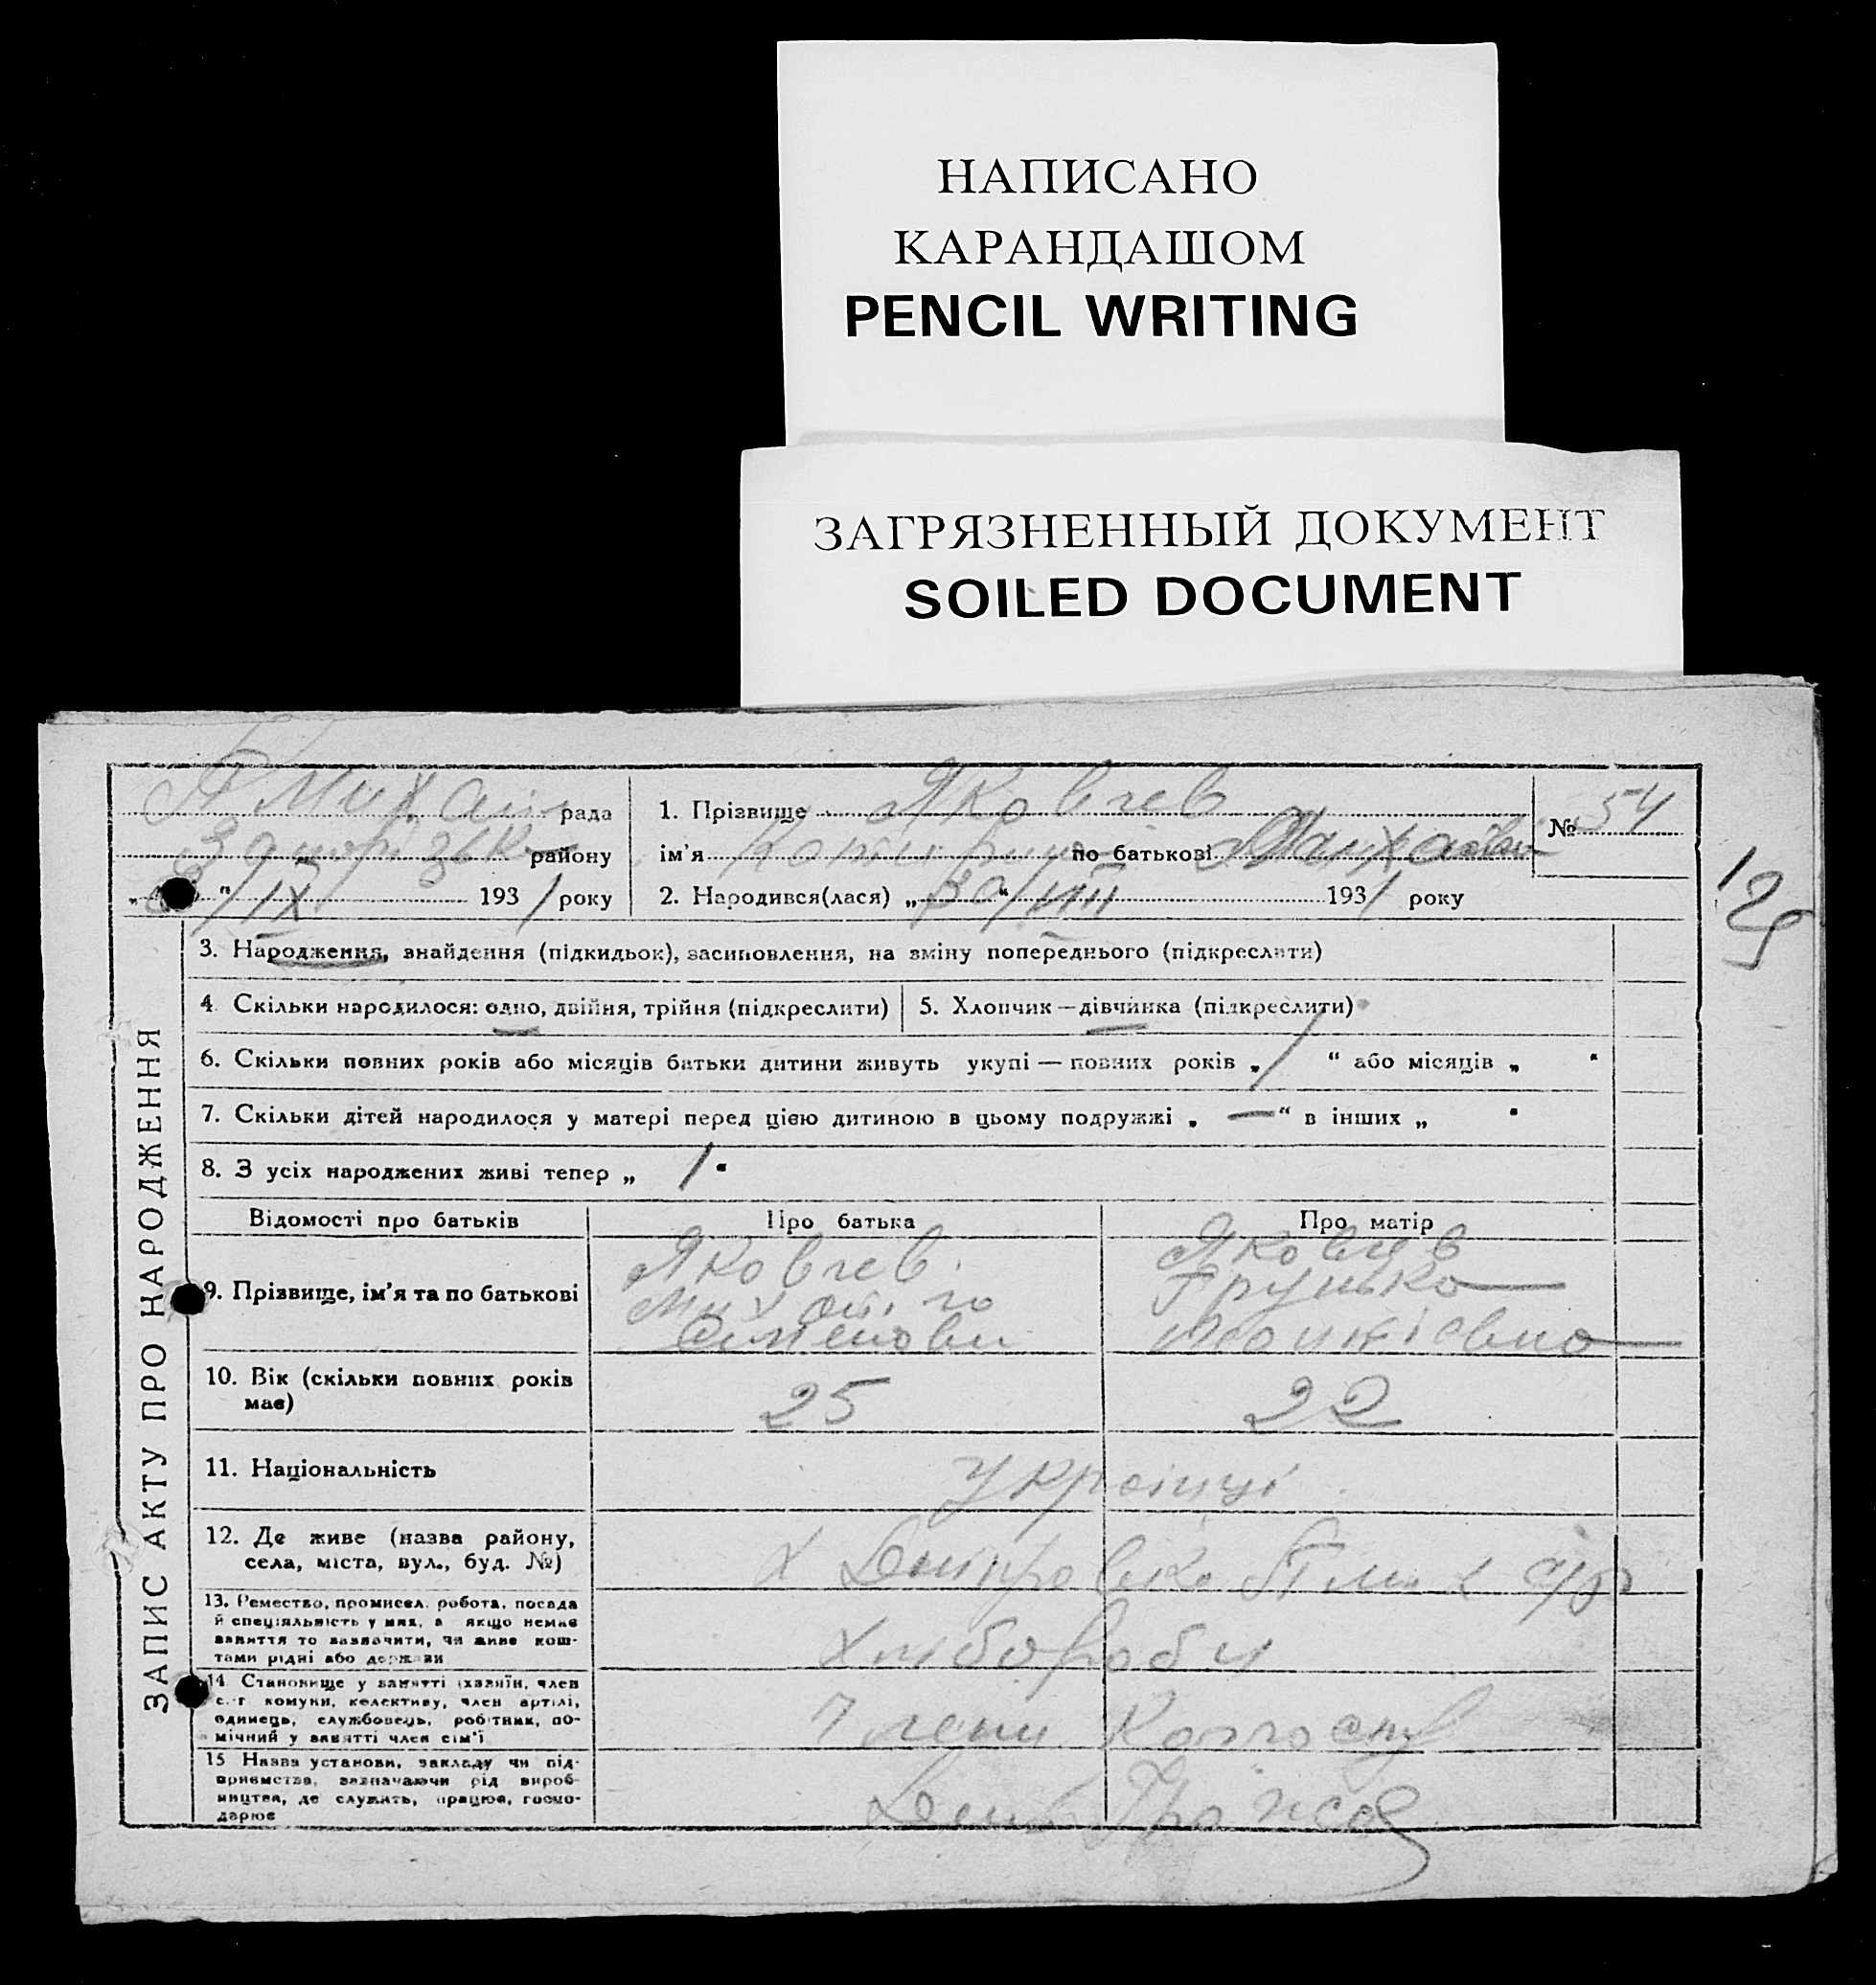 НАПИСАНО
КАРАНДАШОМ
PENCIL WRITING
ЗАГРЯЗНЕННЫЙ ДОКУМЕНТ
SOILED DOCUMENT
рада
району
/IX 1931 року
1. Прізвище Яковлев
ім'я по батькові
2. Народився(лася) „30/VIII“ 1931 року
№ 54
3. Народження, знайдення (підкидьок), засиновлення, на зміну попереднього (підкреслити)
4. Скільки народилося: одно, двійня, трійня (підкреслити)
5. Хлопчик — дівчинка (підкреслити)
6. Скільки повних років або місяців батьки дитини живуть укупі — повних років „ 1 “ або місяців „ “
7. Скільки дітей народилося у матері перед цією дитиною в цьому подружжі „ — “ в інших „ “
8. З усіх народжених живі тепер „ 1 “
ЗАПИС АКТУ ПРО НАРОДЖЕННЯ
Відомості про батьків
Про батька
Про матір
9. Прізвище, ім'я та по батькові
Яковлев
Яковлев
10. Вік (скільки повних років
має)
25
22
11. Національність
Українці
12. Де живе (назва району,
села, міста, вул., буд. №)
13. Ремество, промисел, робота, посада
й спеціяльність у них, а якщо немає
заняття то зазначити, чи живе кош-
тами рідні або держави
Хлібороби
14 Становище у занятті (хазяїн, член
с.-г комуни, колективу, член артілі,
одинець, службовець, робітник, по-
мічний у занятті член сім'ї
Члени
15 Назва установи, закладу чи під-
приємства, зазначаючи рід вироб-
ництва, де служить, працює, госпо-
дарює